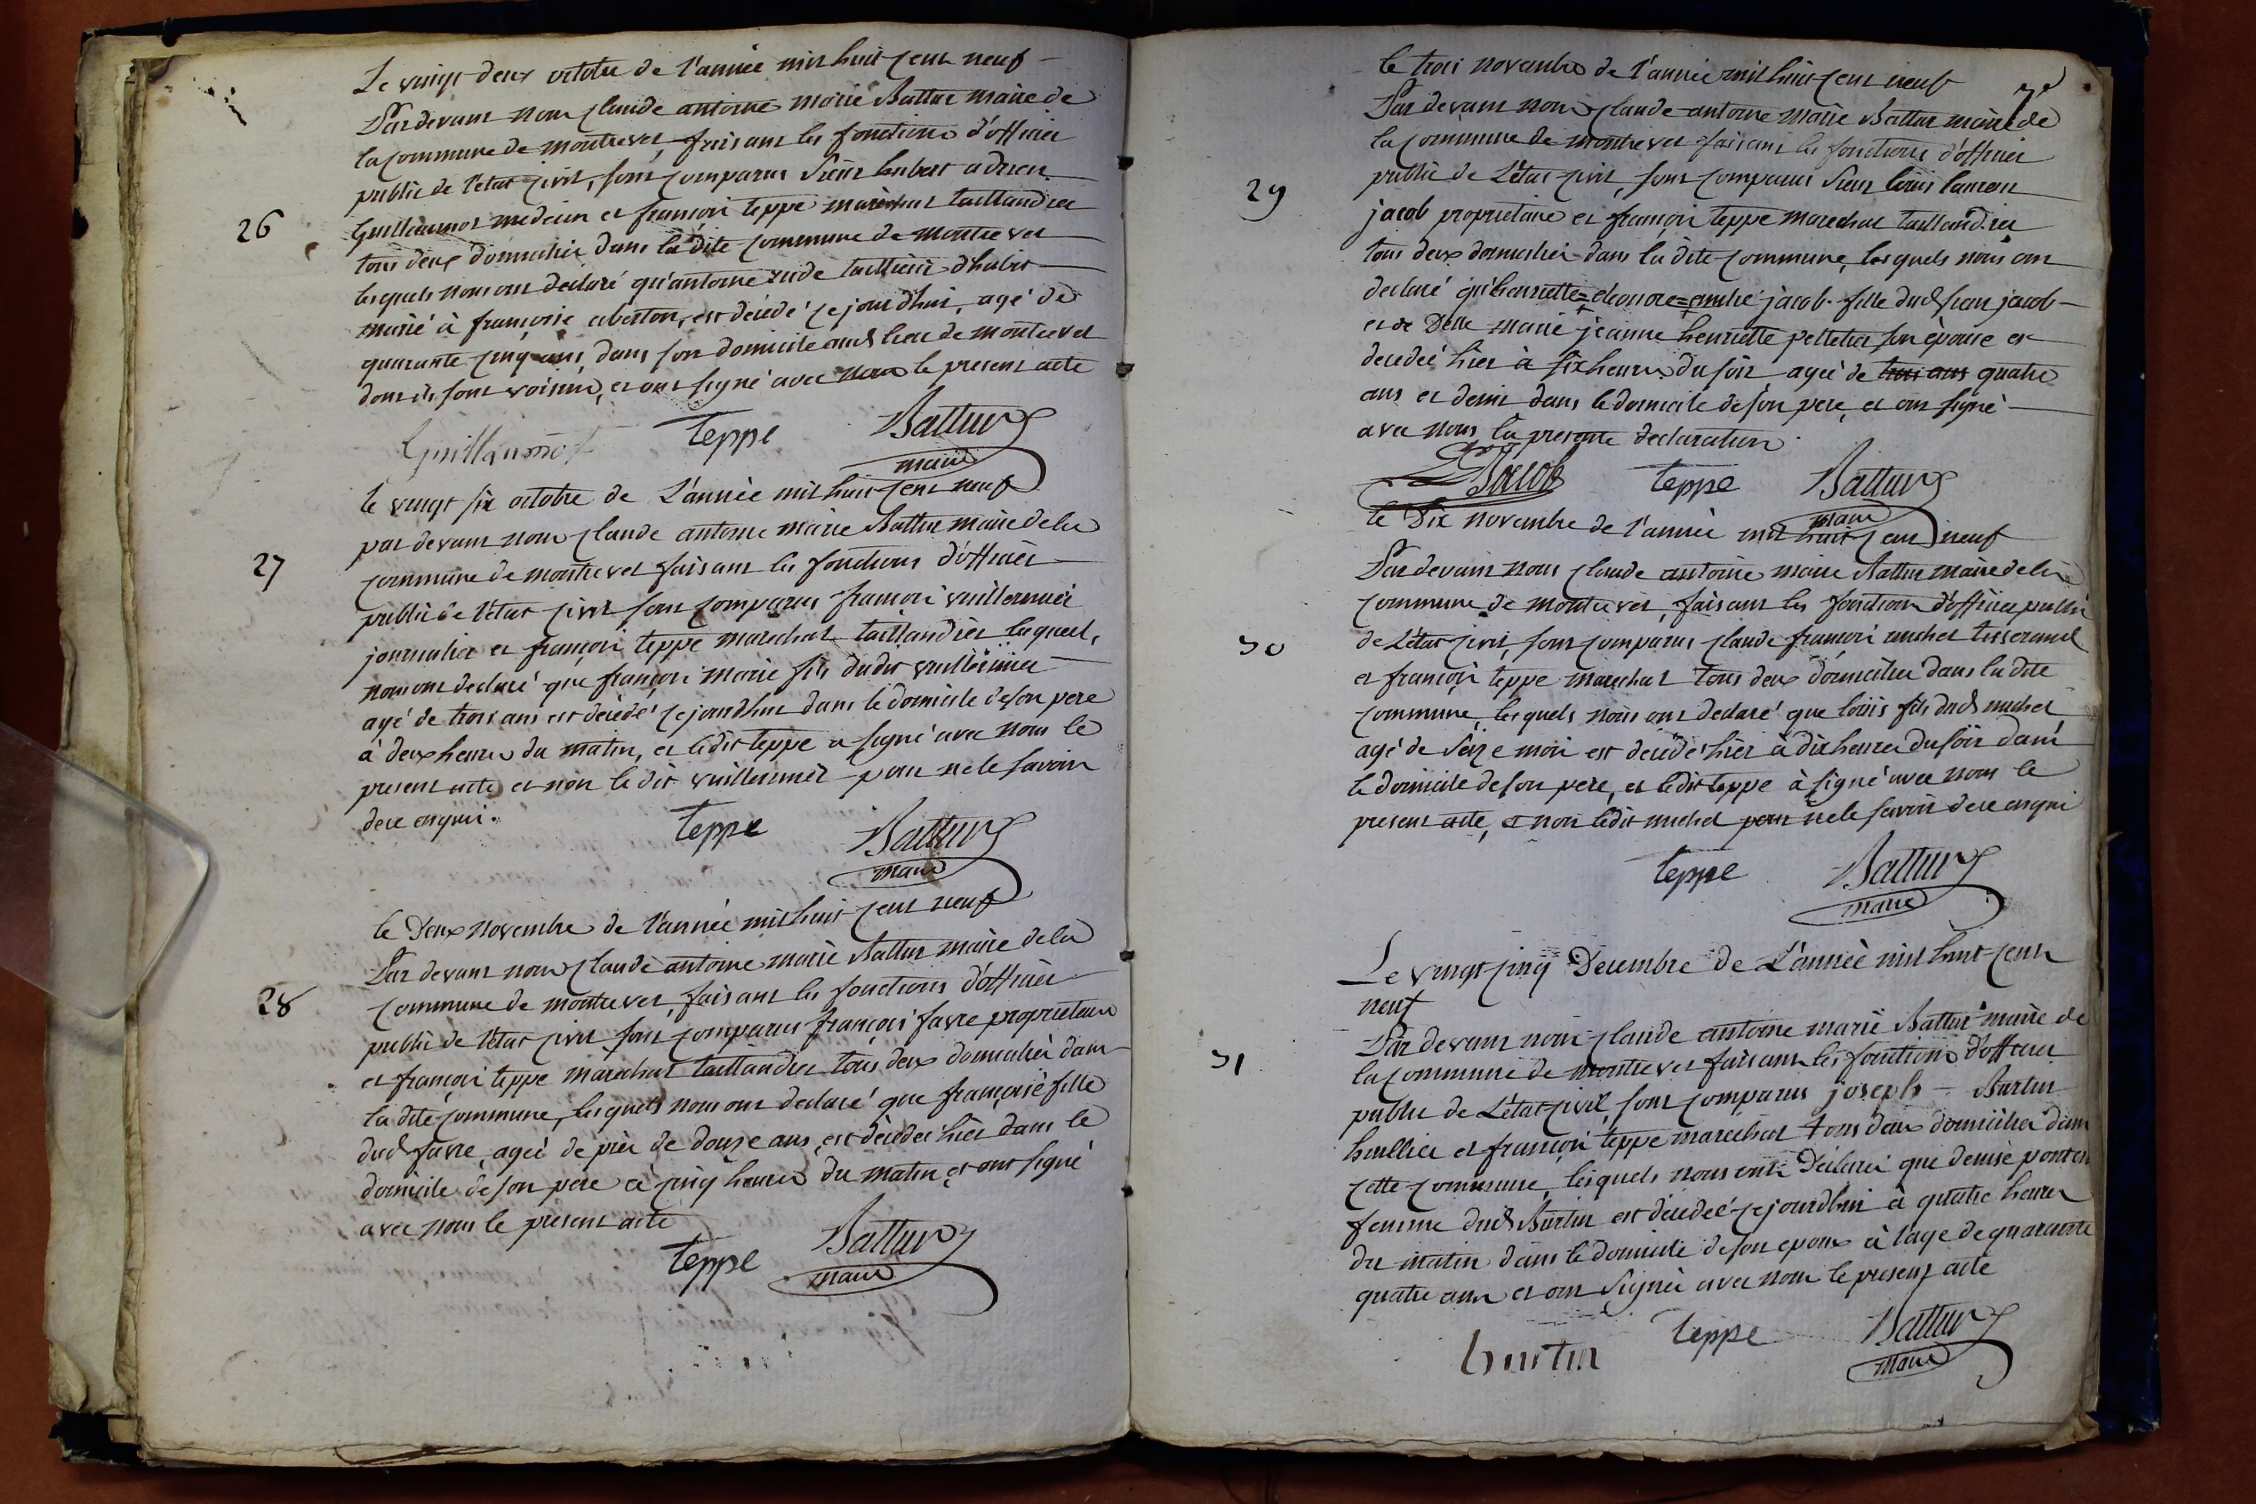 Le vingt deux octobre de l'année mil huit cent neuf
Par devant nous Claude antoine marie Battur maire de
la commune de montrevel, faisant les fonctions d'officier
public de l'état civil, sont comparus Sieur hubert adrien
26
Guillaumot medecin et françois teppe maréchal taillandier
tous deux domiciliés dans la dite commune de montrevel
lesquels nous ont declaré qu'antoine tailleur d'habit
marié à françoise est décédé ce jourd'hui, agé de
quarante cinq ans, dans son domicile aud. lieu de montrevel
dont ils sont voisins, et ont signé avec nous le present acte
Guillaumot teppe Battur
maire
le vingt six octobre de L'année mil huit cent neuf
par devant nous Claude antoine marie Battur maire de la
27
commune de montrevel faisant les fonctions d'officier
public de l'état civil sont comparus françois vuillermier
journalier et françois teppe marechal taillandier lesquels
nous ont declaré que françois marie fils dudit vuillermier
agé de trois ans est décédé ce jourd'hui dans le domicile de son pere
à deux heures du matin, et ledit teppe a signé avec nous le
present acte et non le dit vuillermier pour ne le savoir
de ce enquis.
teppe Battur
maire
le Deux novembre de l'année mil huit cent neuf
Par devant nous Claude antoine marie Battur maire de la
28
commune de montrevel, faisant les fonctions d'officier
public de l'état civil sont comparus françois favre proprietaire
et françois teppe marechal taillandier tous deux domiciliés dans
la dite commune, lesquels nous ont declaré que françoise fille
dud. favre, agée de près de douze ans, est décédée hier dans le
domicile de son père à cinq heures du matin et ont signé
avec nous le present acte
teppe Battur
maire
le trois novembre de l'année mil huit cent neuf
Par devant nous Claude antoine marie Battur maire de
la commune de montrevel faisant les fonctions d'officier
29
public de L'état civil, sont comparus Sieur louis laurent
jacob proprietaire et françois teppe marechal taillandier
tous deux domiciliés dans la dite commune, lesquels nous ont
declaré qu'henriette=eleonore= jacob fille dud. sieur jacob
et de Delle marie jeanne henriette pelletier son épouse est
decedée hier à six heures du soir agée de trois ans quatre
ans et demi dans le domicile de son pere, et ont signé
avec nous la presente declaration.
Jacob teppe Battur
maire
le Dix novembre de l'année mil huit cent neuf
Par devant nous Claude antoine marie Battur maire de la
commune de montrevel, faisant les fonctions d'officier public
30
de L'état civil, sont comparus Claude françois michel tisserand
et françois teppe marechal tous deux domiciliés dans la dite
commune, lesquels nous ont declaré que louis fils dud. michel
agé de seize mois est décédé hier à dix heures du soir dans
le domicile de son pere, et ledit teppe à signé avec nous le
present acte, et non ledit michel pour ne le savoir de ce enquis
teppe Battur
maire
Le vingt cinq Decembre de L'année mil huit cent
neuf
Par devant nous Claude antoine marie Battur maire de
31
la commune de montrevel faisant les fonctions d'officier
public de L'état civil, sont comparus joseph Burtin
huillier et françois teppe marechal tous deux domiciliés dans
cette commune, lesquels nous ont déclaré que denise
femme dud. Burtin est décédée ce jourd'hui à quatre heures
du matin dans le domicile de son epoux à l'age de quarante
quatre ans et ont signé avec nous le present acte
burtin teppe Battur
maire